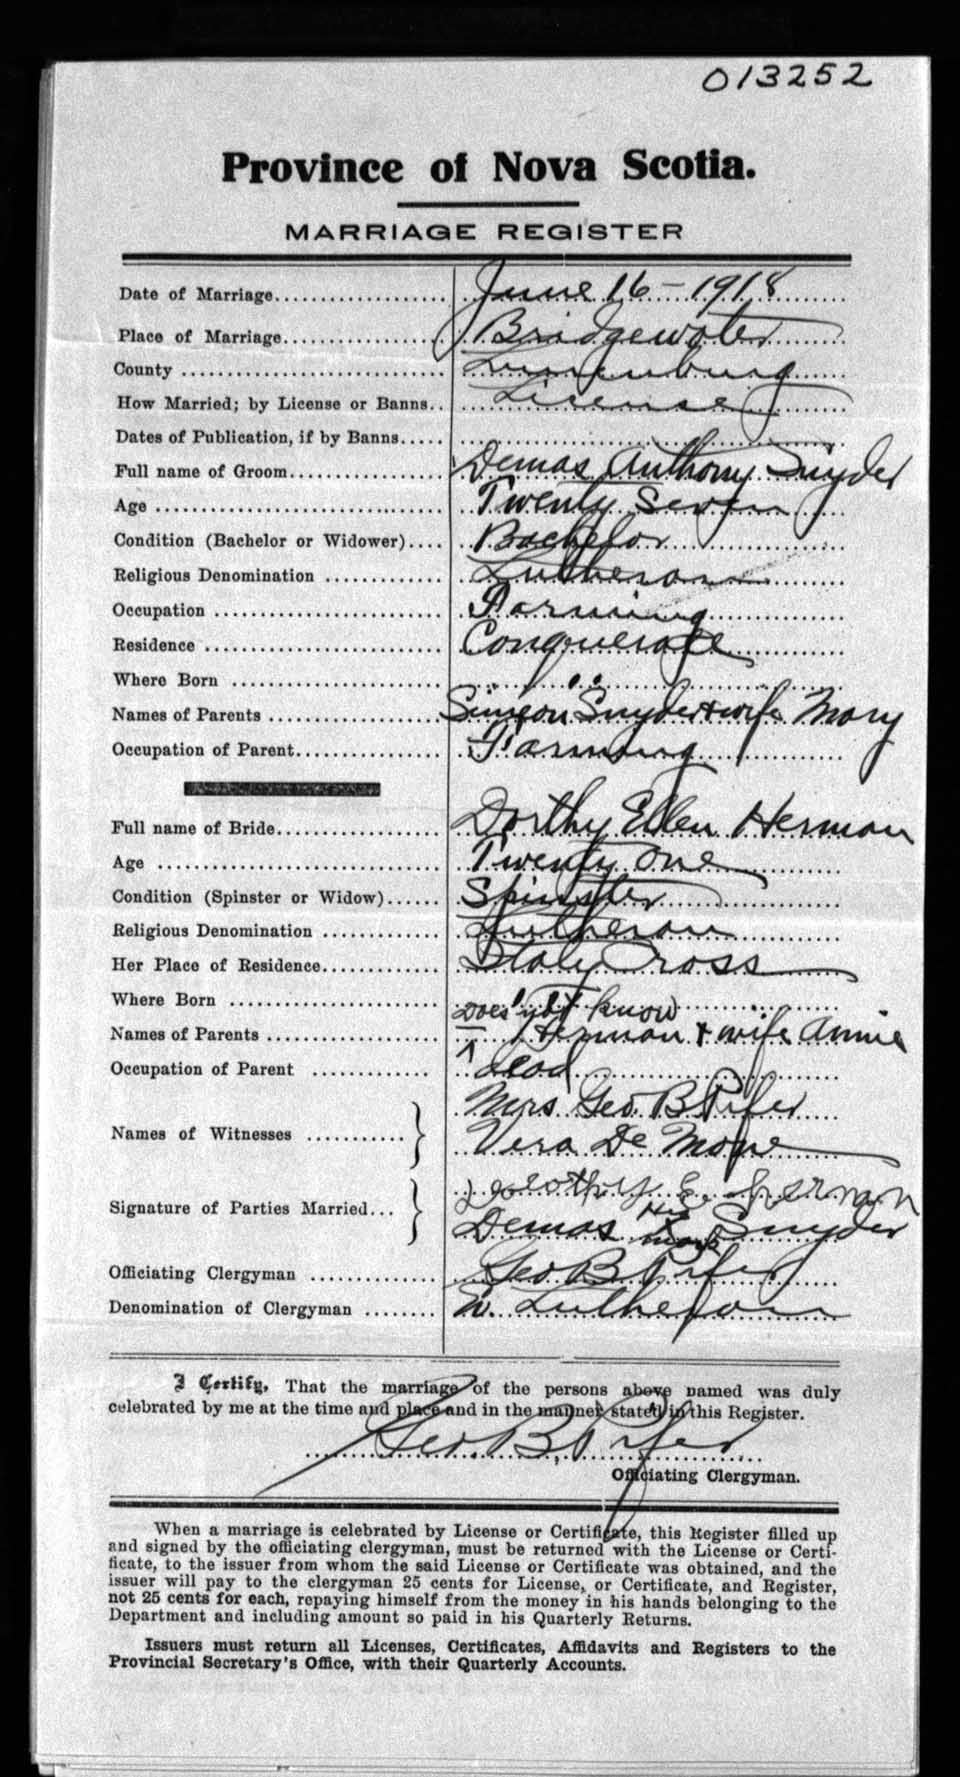 013252
Province of Nova Scotia.
MARRIAGE REGISTER
Date of Marriage.................... June 16 - 1918
Place of Marriage.................... Bridgewater
County .................... Lunenburg
How Married; by License or Banns.. License
Dates of Publication, if by Banns.....
Full name of Groom.................... Demas Anthony Snyder
Age .................... Twenty Seven
Condition (Bachelor or Widower).... Bachelor
Religious Denomination .................... Lutheran
Occupation .................... Farming
Residence .................... Conquerall
Where Born .................... " "
Names of Parents .................... Simeon Snyder + wife Mary
Occupation of Parent.................... Farming
Full name of Bride.................... Dorthy Ellen Herman
Age .................... Twenty One
Condition (Spinster or Widow)...... Spinster
Religious Denomination .................... Lutheran
Her Place of Residence.................... Italy Cross
Where Born .................... " "
Does not know
Names of Parents .................... — Herman + wife Annie
Occupation of Parent .................... dead
Names of Witnesses ........... } Mrs Geo. B Pifer
Vera De Mone
Signature of Parties Married... } Dorothy E. Herman
Demas His X mark Snyder
Officiating Clergyman .................... Geo B Pifer
Denomination of Clergyman ........ Ev. Lutheran
I Certify, That the marriage of the persons above named was duly
celebrated by me at the time and place and in the manner stated in this Register.
Geo. B. Pifer
Officiating Clergyman.
When a marriage is celebrated by License or Certificate, this Register filled up
and signed by the officiating clergyman, must be returned with the License or Certi-
ficate, to the issuer from whom the said License or Certificate was obtained, and the
issuer will pay to the clergyman 25 cents for License, or Certificate, and Register,
not 25 cents for each, repaying himself from the money in his hands belonging to the
Department and including amount so paid in his Quarterly Returns.
Issuers must return all Licenses, Certificates, Affidavits and Registers to the
Provincial Secretary's Office, with their Quarterly Accounts.